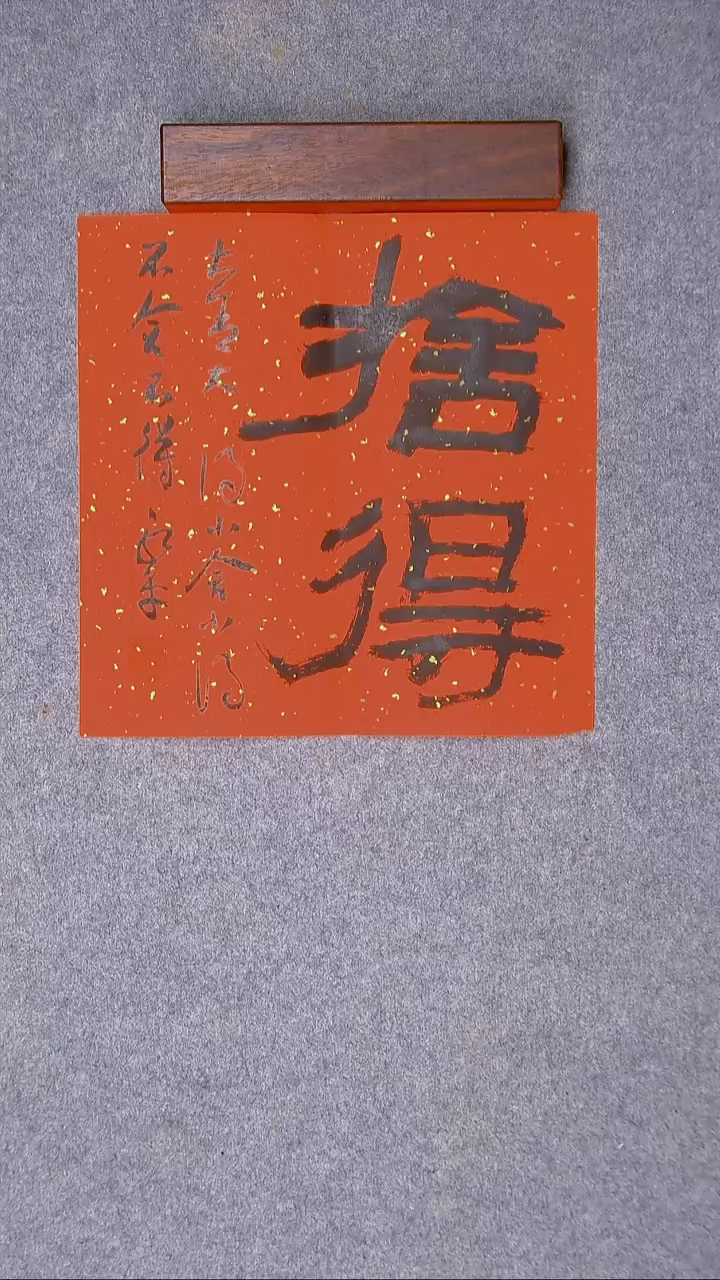 捨得
大舍大得小舍小得
不舍不得